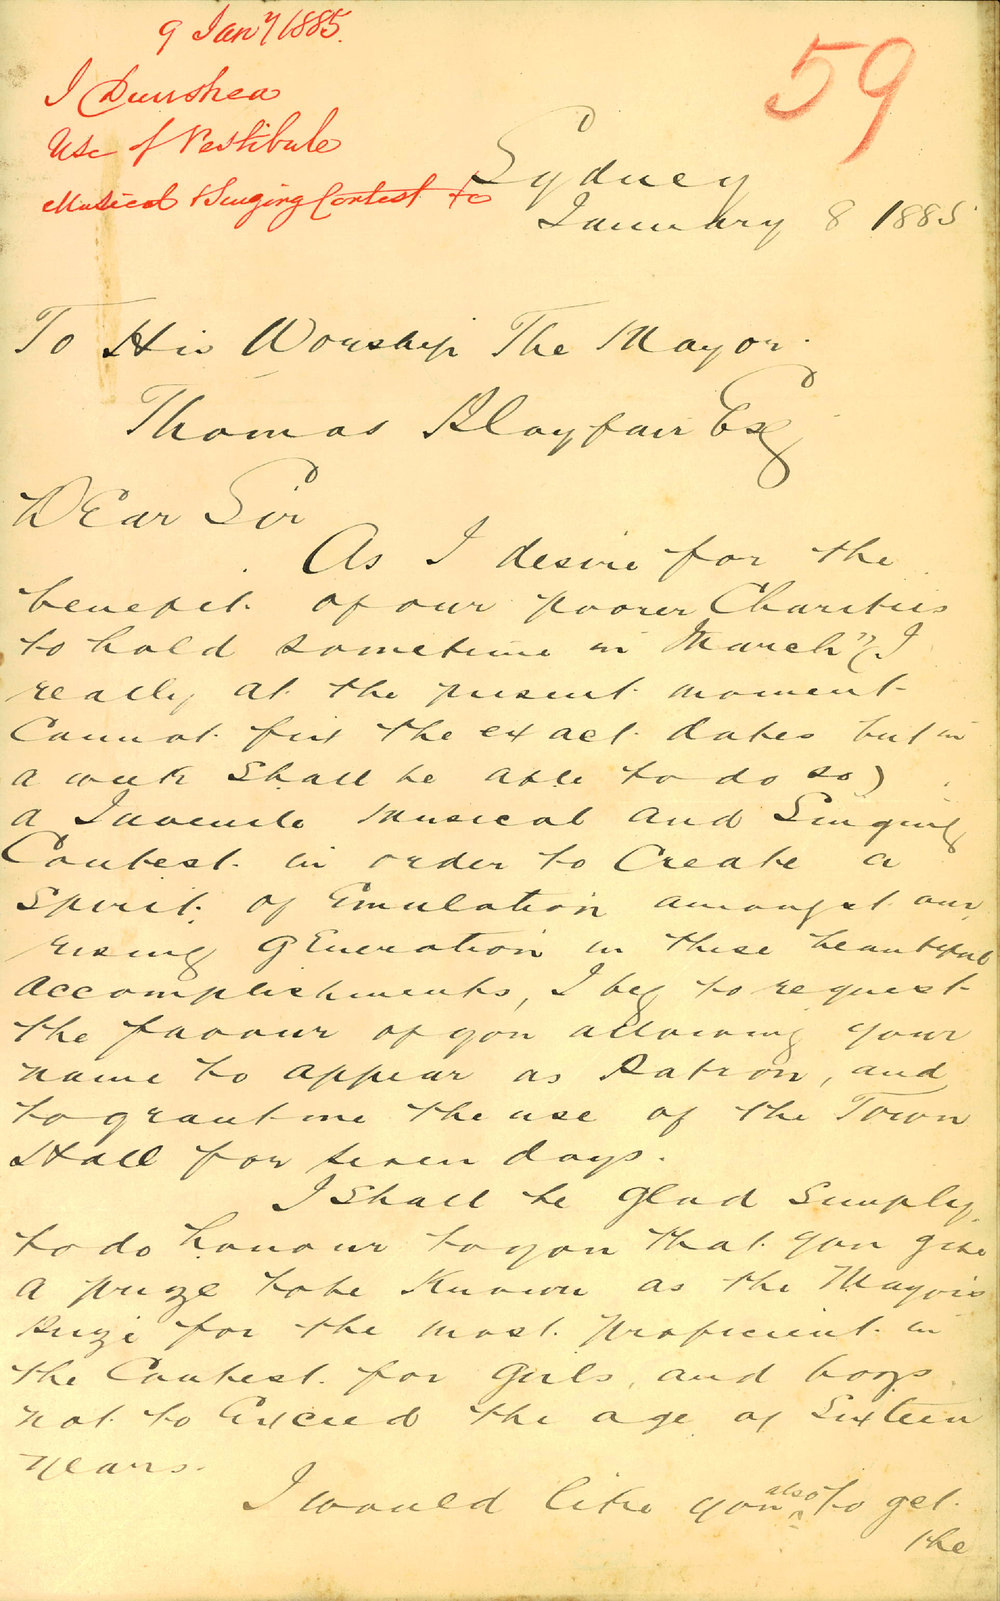 9 Jany 1885.
59
J Dunshea
Use of Vestibule
Musical & Singing Contest to
Sydney
January 8 1885
To His Worship The Mayor.
Thomas Playfair Esq
Dear Sir
As I desire for the
benefit of our poorer Charities
to hold sometime in March (I
really at the present moment
Cannot fix the exact dates but in
a week shall be able to do so)
a Juvenile Musical and Singing
Contest in order to Create a
Spirit of Emulation amongst our
rising generation in these beautiful
accomplishments, I beg to request
the favour of you allowing your
name to appear as Patron, and
to grant me the use of the Town
Hall for seven days.
I shall be glad simply
to do honour to you that you give
a prize to be Known as the Mayor's
Prize for the most proficient in
the Contest for Girls, and boys
not to Exceed the age of Sixteen
years.
I would like you also to get
the